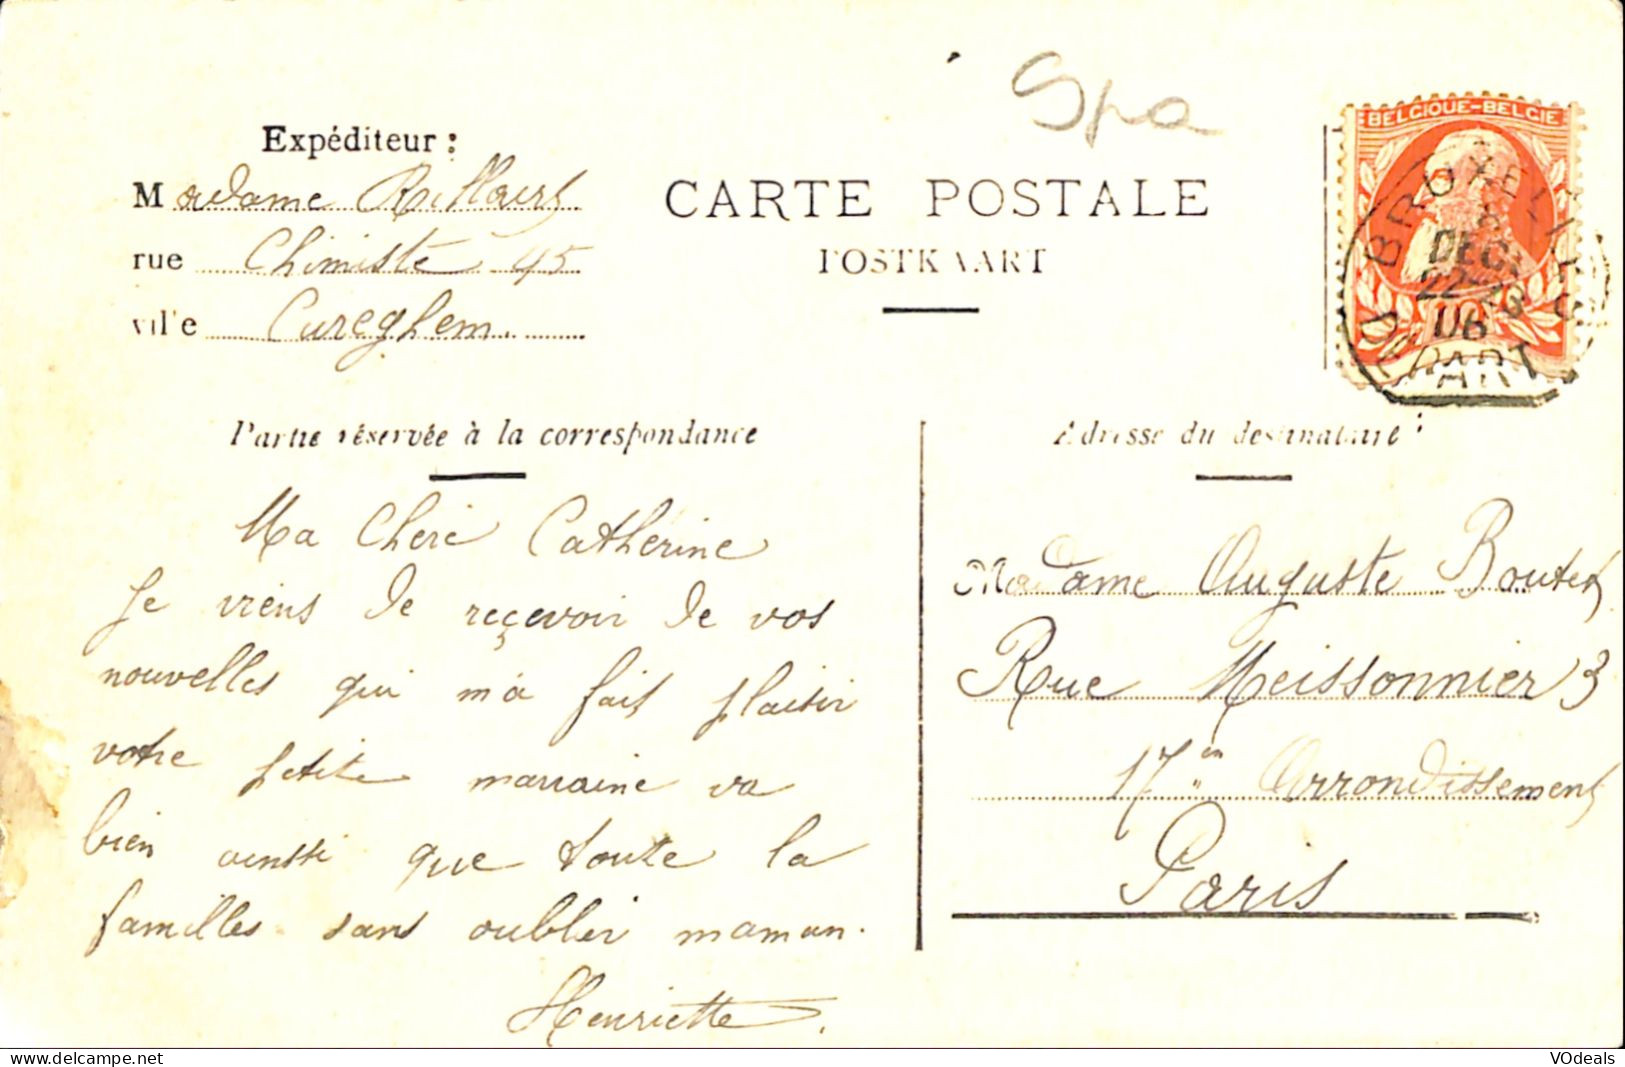 Spa
BELGIQUE-BELGIE
BRUXELLES
8
DEC
22-23
06
DEPART
Expéditeur :
Madame Rillaert
rue Chimiste 45
ville Cureghem.
CARTE POSTALE
POSTKAART
Partie réservée à la correspondance
Adresse du destinataire :
Ma Chere Catherine
Je viens de reçevoir de vos
nouvelles qui m'a fait plaisir
votre petite marraine va
bien ainssi que toute la
familles sans oublier maman.
Henriette.
Madame Auguste Bouter
Rue Meissonnier 3
17en Arrondissement
Paris
www.delcampe.net
VOdeals